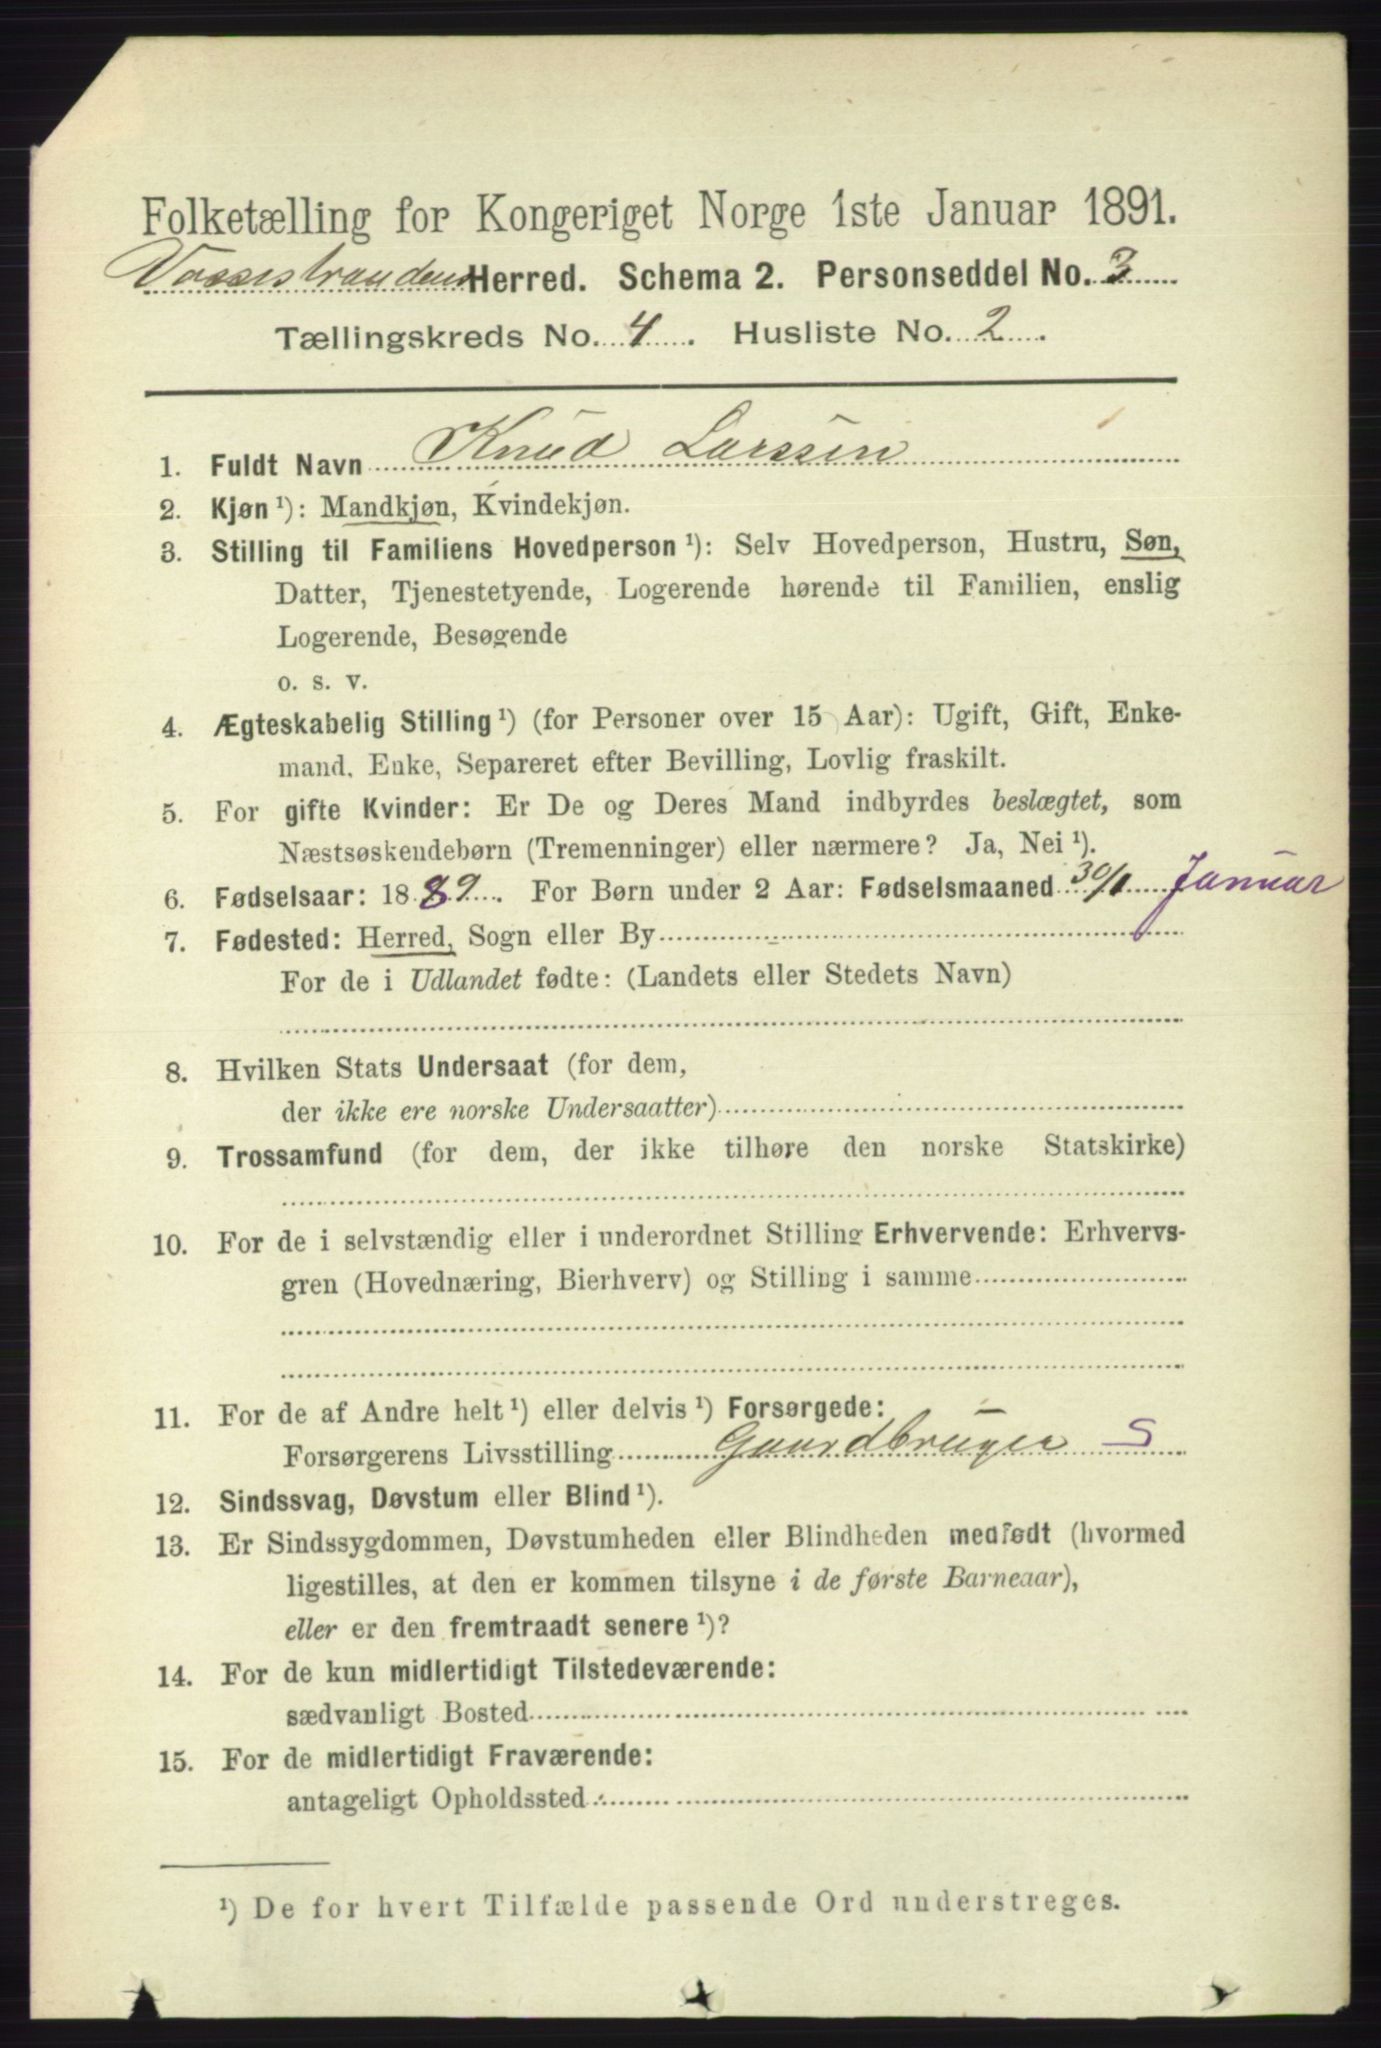 Folketælling for Kongeriget Norge 1ste Januar 1891.
Vossestrandens Herred. Schema 2. Personseddel No. 3
Tællingskreds No. 4. Husliste No. 2.
1. Fuldt Navn Knud Larssen
2. Kjøn ¹): Mandkjøn, Kvindekjøn.
3. Stilling til Familiens Hovedperson ¹): Selv Hovedperson, Hustru, Søn,
Datter, Tjenestetyende, Logerende hørende til Familien, enslig
Logerende, Besøgende
o. s. v.
4. Ægteskabelig Stilling ¹) (for Personer over 15 Aar): Ugift, Gift, Enke-
mand, Enke, Separeret efter Bevilling, Lovlig fraskilt.
5. For gifte Kvinder: Er De og Deres Mand indbyrdes beslægtet, som
Næstsøskendebørn (Tremenninger) eller nærmere? Ja, Nei ¹).
6. Fødselsaar: 1889. For Børn under 2 Aar: Fødselsmaaned 30/1 Januar
7. Fødested: Herred, Sogn eller By
For de i Udlandet fødte: (Landets eller Stedets Navn)
8. Hvilken Stats Undersaat (for dem,
der ikke ere norske Undersaatter)
9. Trossamfund (for dem, der ikke tilhøre den norske Statskirke)
10. For de i selvstændig eller i underordnet Stilling Erhvervende: Erhvervs-
gren (Hovednæring, Bierhverv) og Stilling i samme
11. For de af Andre helt ¹) eller delvis ¹) Forsørgede:
Forsørgerens Livsstilling Gaardbruger S
12. Sindssvag, Døvstum eller Blind ¹).
13. Er Sindssygdommen, Døvstumheden eller Blindheden medfødt (hvormed
ligestilles, at den er kommen tilsyne i de første Barneaar),
eller er den fremtraadt senere ¹)?
14. For de kun midlertidigt Tilstedeværende:
sædvanligt Bosted
15. For de midlertidigt Fraværende:
antageligt Opholdssted
¹) De for hvert Tilfælde passende Ord understreges.